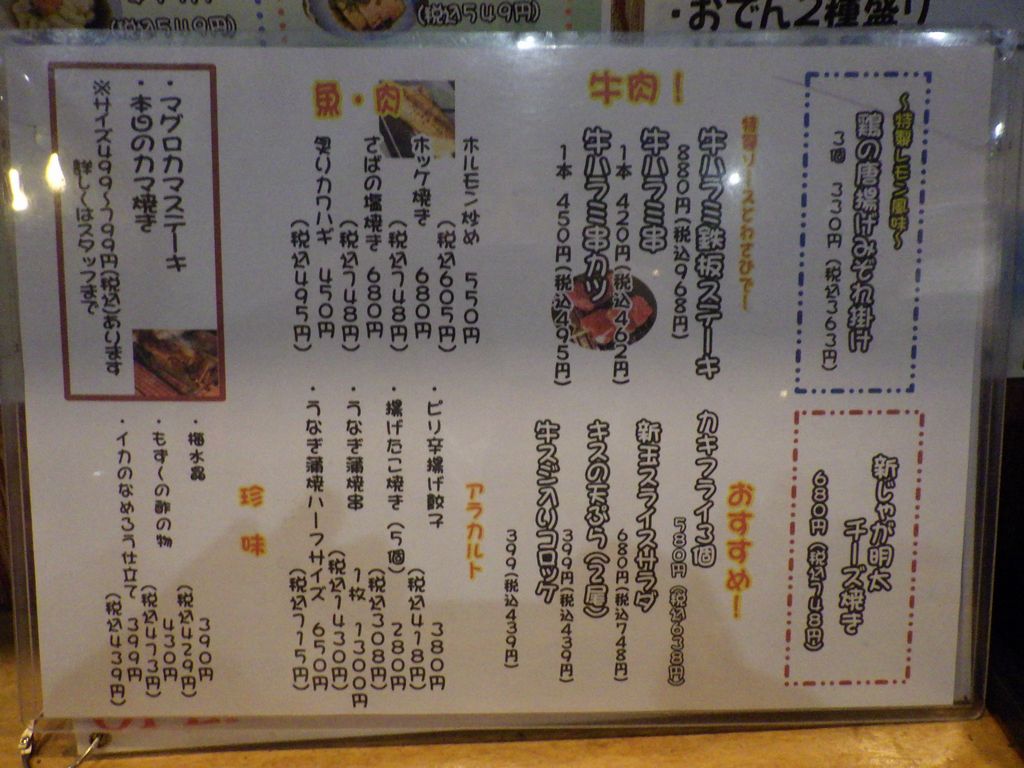 ・おでん2種盛り
(税込549円)
(税込549円)
～特製レモン風味～
鶏の唐揚げみぞれ掛け
3個 330円(税込363円)
新じゃが明太
チーズ焼き
680円(税込748円)
牛肉！
特製ソースとわさびで～
牛ハラミ鉄板ステーキ
880円(税込968円)
牛ハラミ串
1本 420円(税込462円)
牛ハラミ串カツ
1本 450円(税込495円)
おすすめ！
カキフライ3個
580円(税込638円)
新玉スライスサラダ
680円(税込748円)
キスの天ぷら(2尾)
399円(税込439円)
牛スジ入りコロッケ
399(税込439円)
魚・肉
ホルモン炒め 550円
(税込605円)
ホッケ焼き 680円
(税込748円)
さばの塩焼き 680円
(税込748円)
炙りカワハギ 450円
(税込495円)
アラカルト
・ピリ辛揚げ餃子 380円
(税込418円)
・揚げたこ焼き(5個) 280円
(税込308円)
・うなぎ蒲焼串 1枚 1300円
(税込1430円)
・うなぎ蒲焼ハーフサイズ 650円
(税込715円)
・マグロカマステーキ
・本日のカマ焼き
※サイズ499～799円(税込)あります
詳しくはスタッフまで
珍味
・梅水晶 390円
(税込429円)
・もずくの酢の物 430円
(税込473円)
・イカのなめろう仕立て 399円
(税込439円)